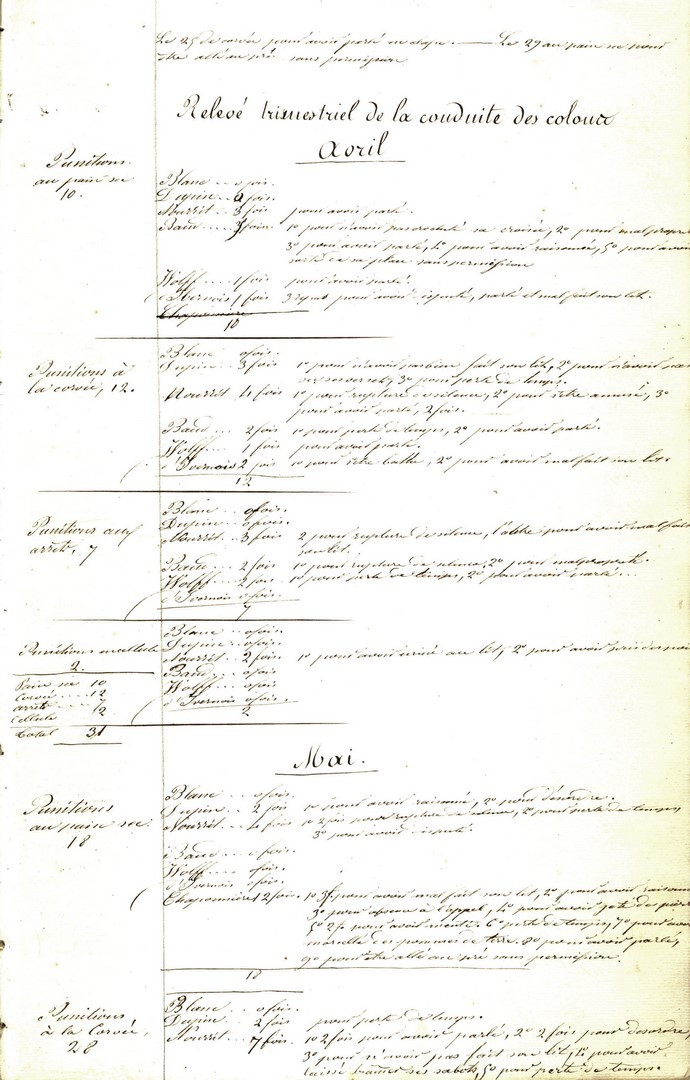 Le 25 de corvée pour avoir parlé en classe. — Le 29 au pain sec pour
être allé au pré sans permission
Relevé trimestriel de la conduite des colons
Avril
Punitions
au pain sec
10.
Blanc .. 0 fois.
Dupin .. 0 fois.
Nourrit .. 3 fois pour avoir parlé.
Baud ... 5 fois. 1o pour n'avoir pas crocheté sa croisée, 2o pour malpropreté
3o pour avoir parlé, 4o pour avoir raisonné, 5o pour avoir
sorti de sa place sans permission
Wolff .... 1 fois pour avoir parlé.
d'Ivernois 1 fois pour avoir disputé, parlé et mal fait son lit.
Chaponnière
10
Punitions à
la corvée, 12.
Blanc 0 fois.
Dupin .. 3 fois 1o pour n'avoir pas bien fait son lit, 2o pour n'avoir pas
3o pour perte de temps.
Nourrit 4 fois 1o pour rupture de silence, 2o pour s'être amusé, 3o
pour avoir parlé, 2 fois.
Baud .. 2 fois 1o pour perte de temps, 2o pour avoir parlé.
Wolff .... 1 fois pour avoir parlé.
d'Ivernois 2 fois 1o pour s'être battu, 2o pour avoir mal fait son lit.
12
Punitions aux
arrêts, 7
Blanc .. 0 fois.
Dupin .. 0 fois.
Nourrit .. 3 fois 2 pour rupture de silence, l'autre pour avoir mal fait
son lit.
Baud .. 2 fois 1o pour rupture de silence, 2o pour malpropreté.
Wolff ... 2 fois 1o pour perte de temps, 2o pour avoir parlé ...
d'Ivernois 0 fois.
7
Punitions en cellule
2.
Blanc .. 0 fois.
Dupin .. 0 fois.
Nourrit .. 2 fois 1o pour avoir uriné au lit, 2o pour avoir pris des
Baud .. 0 fois
Wolff ... 0 fois
d'Ivernois 0 fois.
2
Pain sec 10
Corvée .... 12
arrêts .... 7
Cellule 2
Total 31
Mai.
Punitions
au pain sec.
18
Blanc .... 0 fois.
Dupin .. 2 fois 1o pour avoir raisonné, 2o pour désordre.
Nourrit .. 4 fois 1o 2 fois pour rupture de silence, 2o pour perte de temps,
3o pour avoir disputé.
Baud ... 0 fois.
Wolff ... 0 fois.
d'Ivernois 0 fois.
Chaponnière 12 fois. 1o 3 f. pour avoir mal fait son lit, 2o pour avoir raisonné
3o pour absence à l'appel, 4o pour avoir jeté des pierres
5o 2 f. pour avoir menti. 6o perte de temps, 7o pour avoir
des pommes de terre. 8o pour avoir parlé,
9o pour être allé au pré sans permission.
18
Punitions,
à la Corvée,
28
Blanc .... 0 fois.
Dupin .. 2 fois pour perte de temps.
Nourrit ... 7 fois. 1o 2 fois pour avoir parlé, 2o 2 fois pour désordre,
3o pour n'avoir pas fait son lit, 4o pour avoir
laissé traîner ses sabots, 5o pour perte de temps.